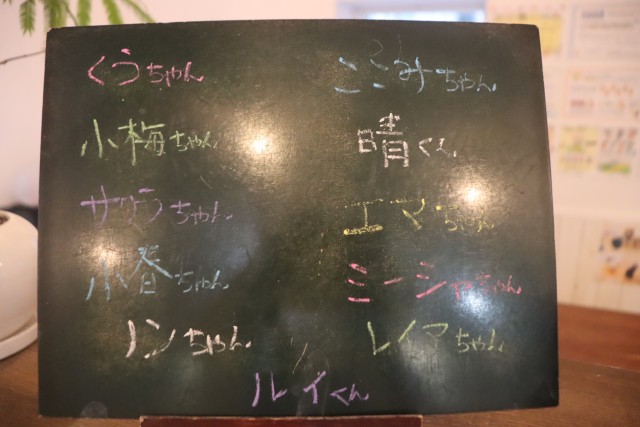 くうちゃん
ここみちゃん
小梅ちゃん
晴くん
サクラちゃん
エマちゃん
小春ちゃん
ミーシャちゃん
ノンちゃん
レイアちゃん
ルイくん